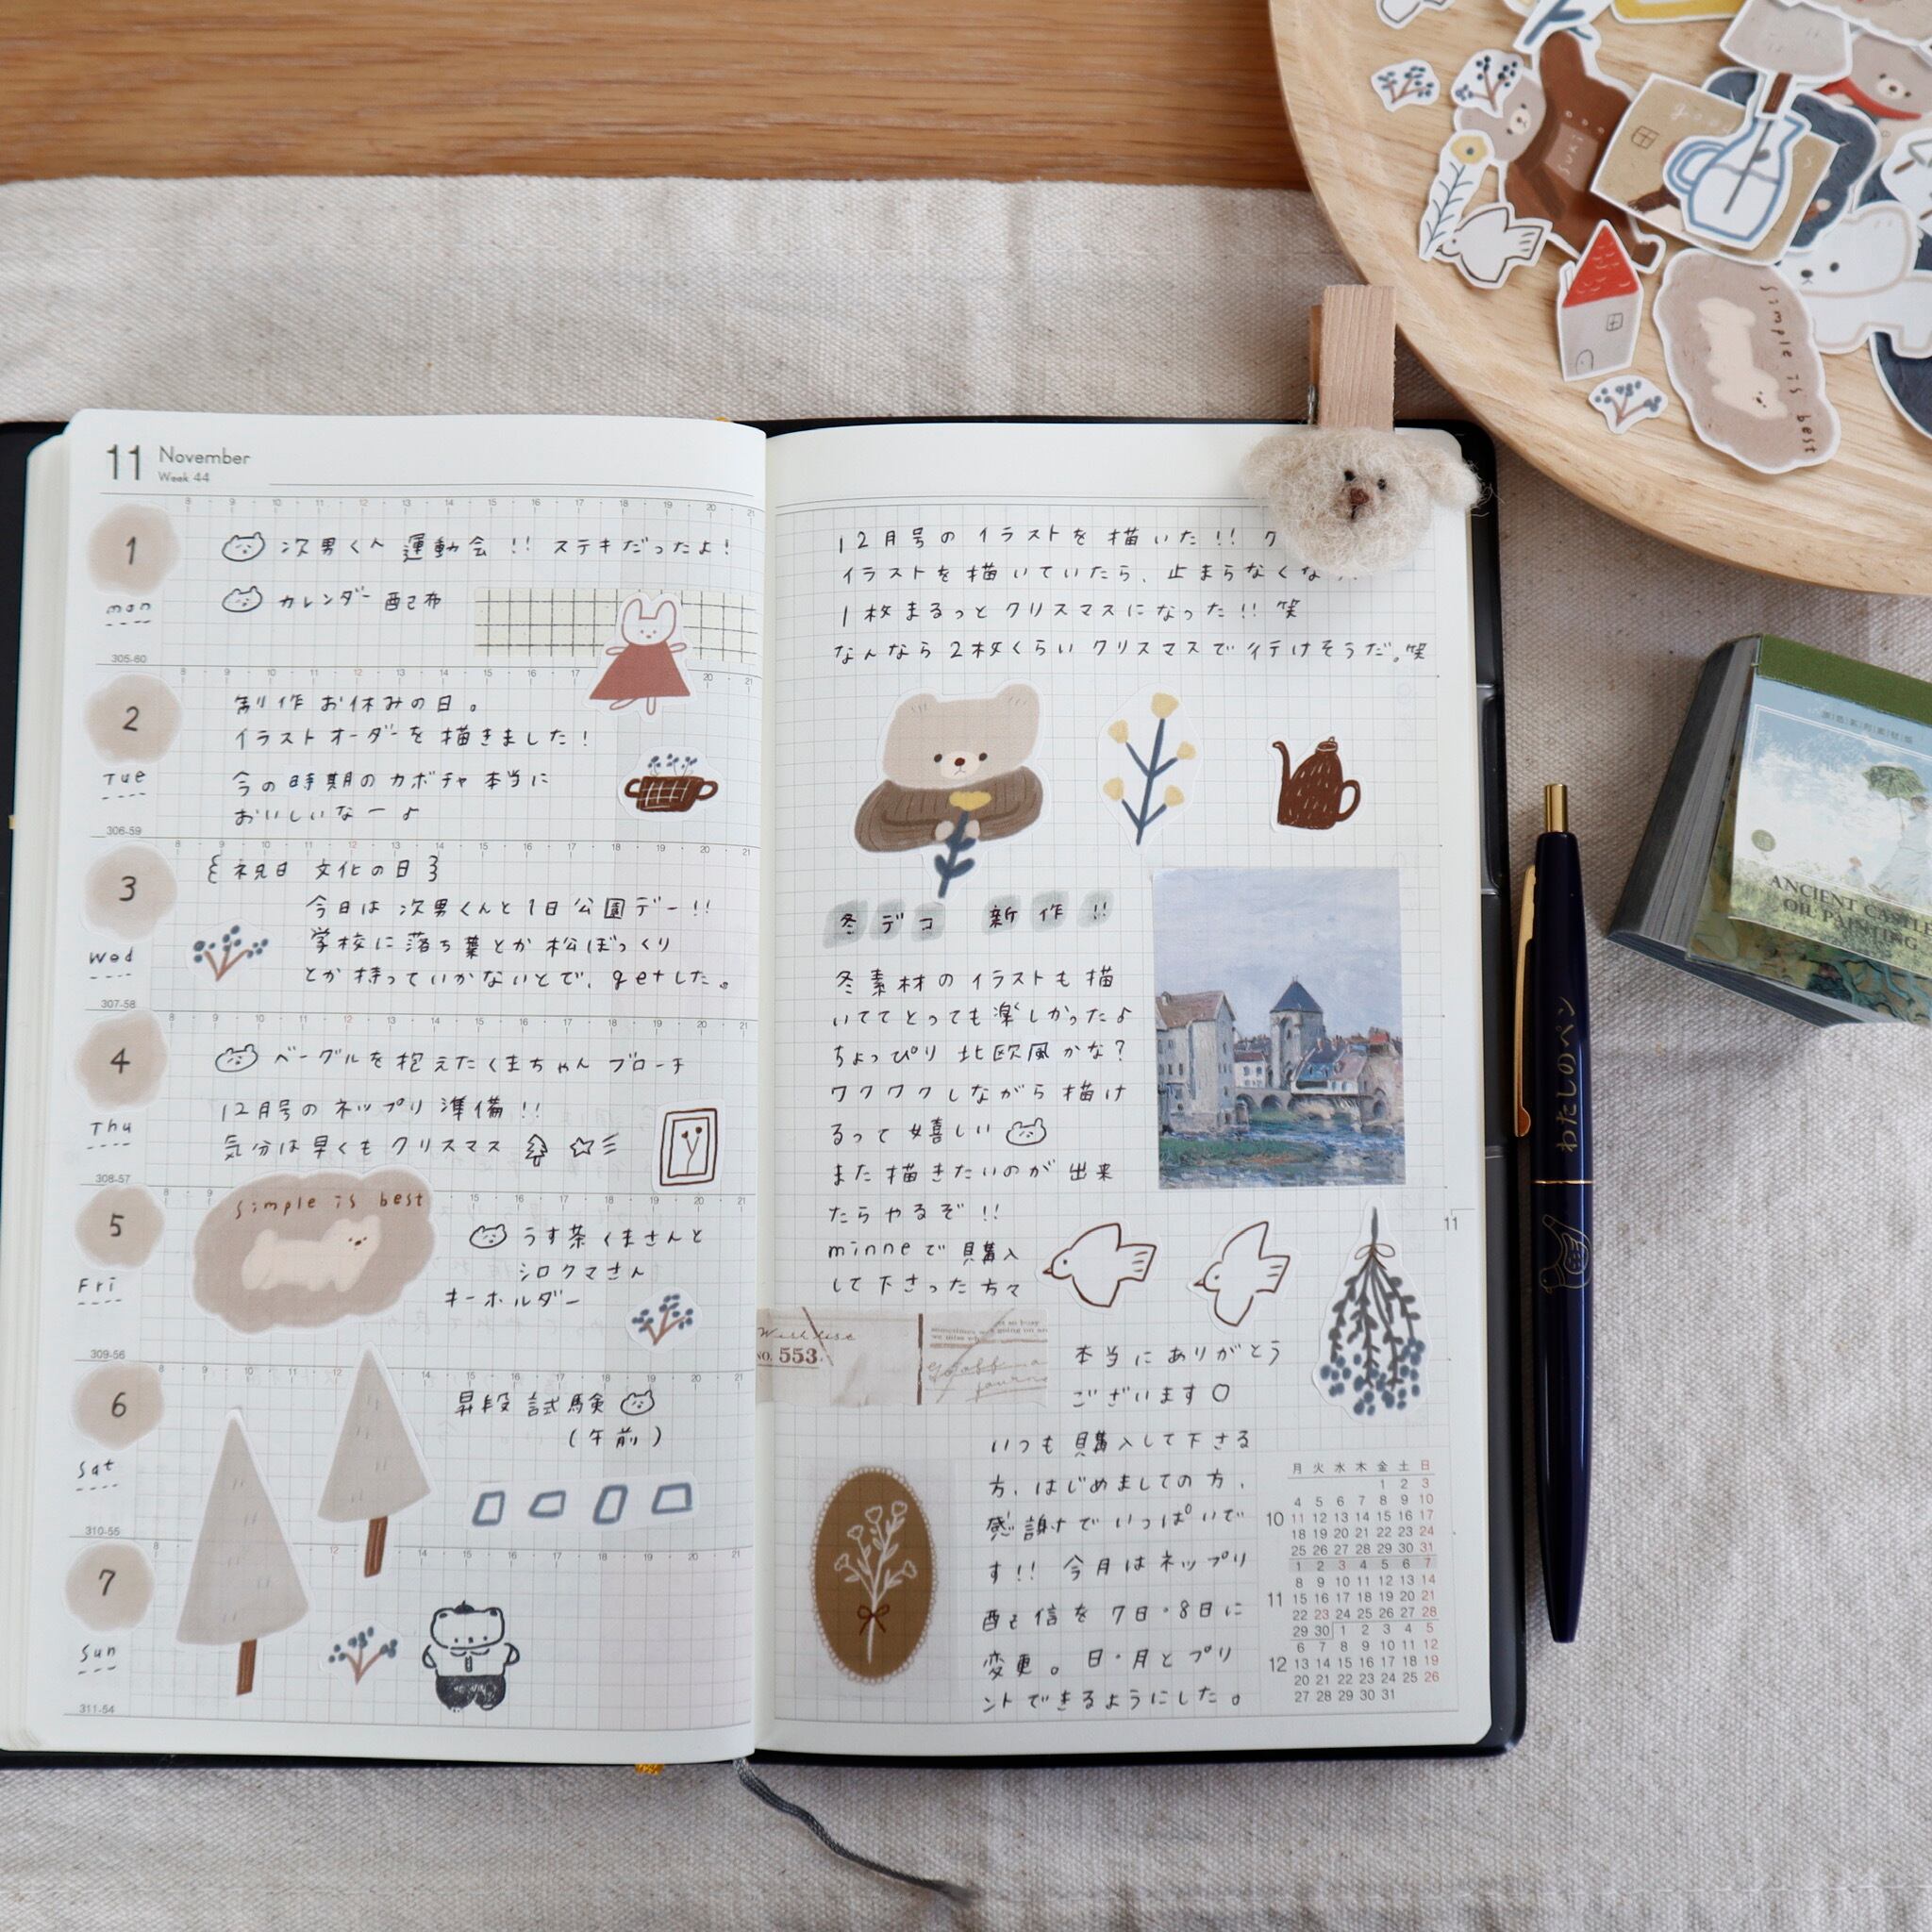 11 November
Week 44
8 9 10 11 12 13 14 15 16 17 18 19 20 21
1
mon
305-60
次男くん 運動会 !! ステキだったよ!
カレンダー 配布
2
Tue
306-59
制作 お休みの日。
イラスト オーダーを 描きました!
今の時期の カボチャ 本当に
おいしいなー♪
3
Wed
307-58
{ 祝日 文化の日 }
今日は 次男くんと 1日 公園デー!!
学校に 落ち葉とか 松ぼっくり
とか 持っていかないとで、getした。
4
Thu
308-57
ベーグルを 抱えた くまちゃん ブローチ
12月号の ネップリ 準備!!
気分は 早くも クリスマス
5
Fri
309-56
simple is best
うす茶 くまさんと
シロクマさん
キーホルダー
6
Sat
310-55
昇段 試験
(午前)
7
Sun
311-54
12月号の イラストを 描いた!! ク
イラストを 描いていたら、止まらなくな
1枚まるっと クリスマスになった!! 笑
なんなら 2枚くらい クリスマスで 行けそうだ。笑
冬デコ 新作 !!
冬素材の イラストも 描
いてて とっても 楽しかった♪
ちょっぴり 北欧風かな?
ワクワクしながら 描け
るって 嬉しい
また 描きたいのが 出来
たら やるぞ !!
minneで 購入
して下さった 方々
NO. 553
本当に ありがとう
ございます○
いつも 購入して下さる
方、はじめましての 方、
感謝で いっぱいで
す!! 今月は ネップリ
配信を 7日・8日に
変更。日・月と プリ
ントできるようにした。
11
月 火 水 木 金 土 日
1 2 3
4 5 6 7 8 9 10
10 11 12 13 14 15 16 17
18 19 20 21 22 23 24
25 26 27 28 29 30 31
1 2 3 4 5 6 7
8 9 10 11 12 13 14
11 15 16 17 18 19 20 21
22 23 24 25 26 27 28
29 30 1 2 3 4 5
6 7 8 9 10 11 12
12 13 14 15 16 17 18 19
20 21 22 23 24 25 26
27 28 29 30 31
わたしのペン
simple is best
suki
ANCIENT CASTLE
OIL PAINTING